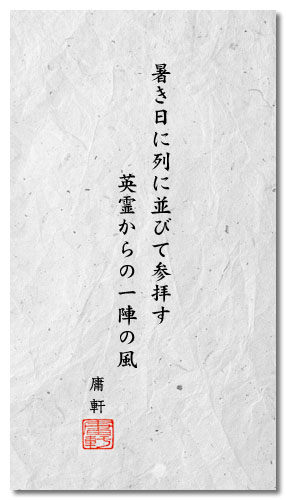 暑き日に列に並びて参拝す
英霊からの一陣の風
庸軒